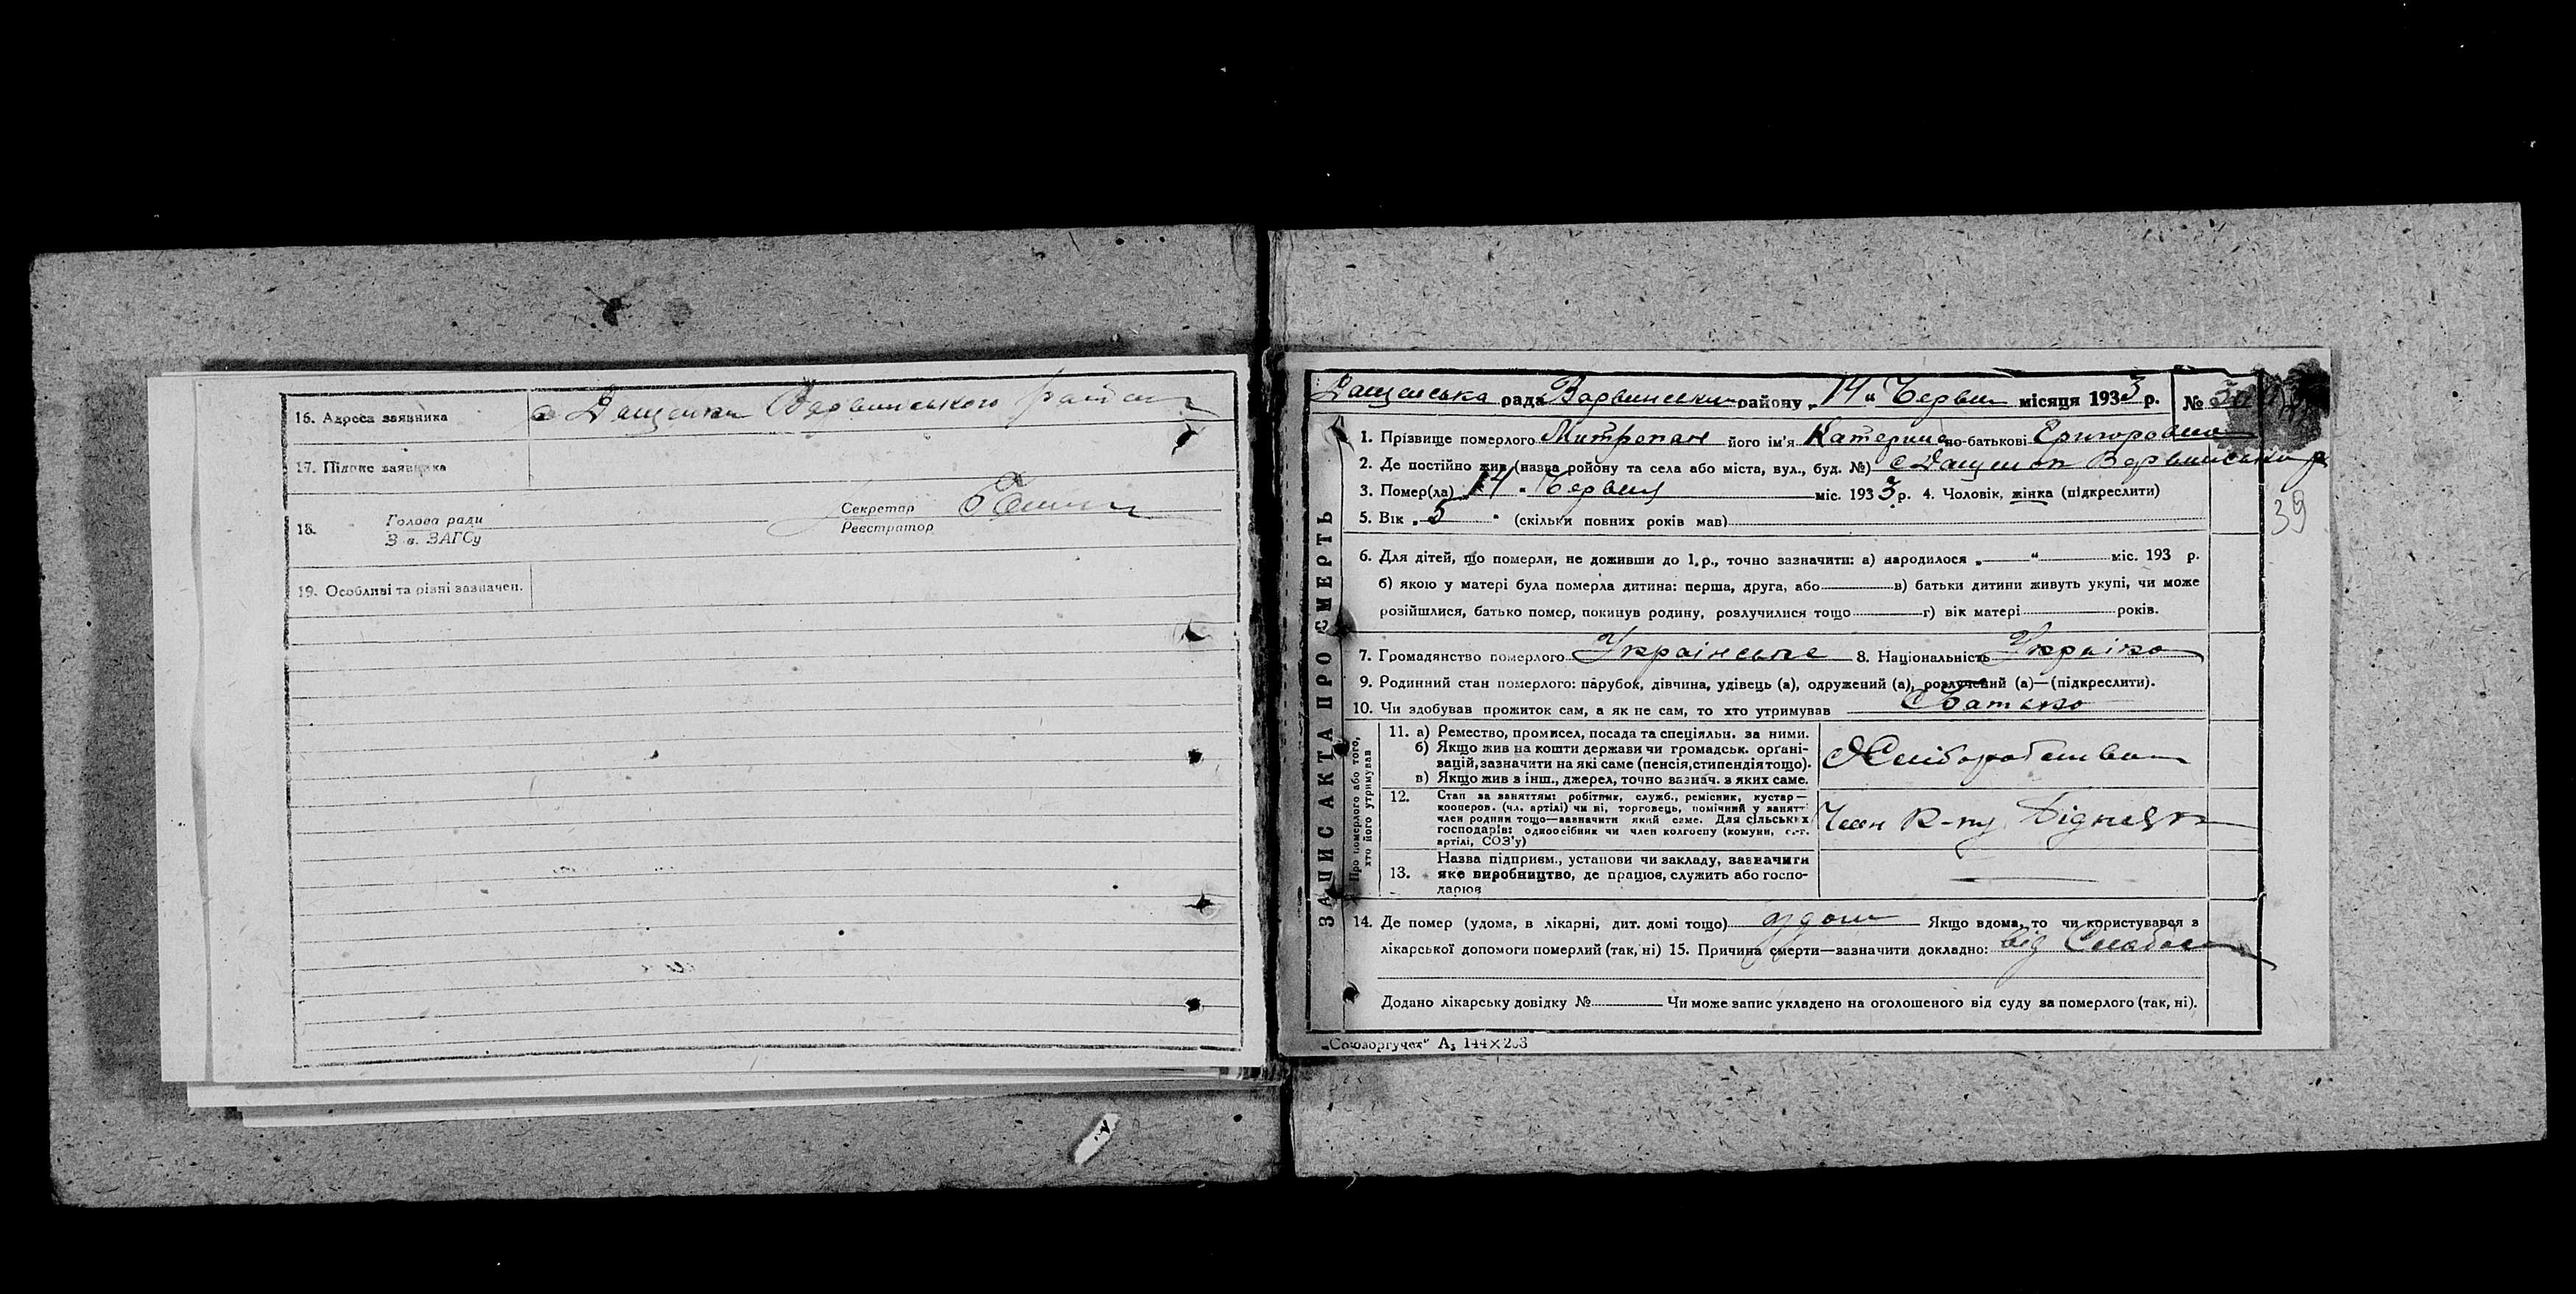 16. Адреса заявника с Дащенки Варвинського району
17. Підпис заявника
18. Голова ради Секретар
З в. ЗАГСу Реєстратор
19. Особливі та різні зазначен.
Дащенська рада Варвинського району „14 " Червня місяця 1933 р. №
1. Прізвище померлого Митрепан його ім'я Катерина по-батькові Григоровна
2. Де постійно жив (назва району та села або міста, вул., буд. №) с Дащенки Варвинського р
3. Помер(ла) „14 " Червня міс. 1933 р. 4. Чоловік, жінка (підкреслити)
39
5. Вік „ 5 " (скільки повних років мав)
6. Для дітей, що померли, не доживши до 1 р., точно зазначити: а) народилося „ " міс. 193 р.
б) якою у матері була померла дитина: перша, друга, або в) батьки дитини живуть укупі, чи може
розійшлися, батько помер, покинув родину, розлучилися тощо г) вік матері років.
7. Громадянство померлого Українське 8. Національність Українка
9. Родинний стан померлого: парубок, дівчина, удівець (а), одружений (а), розлучений (а)—(підкреслити).
10. Чи здобував прожиток сам, а як не сам, то хто утримував Батько
ЗАПИС АКТА ПРО СМЕРТЬ
Про померлого або того,
хто його утримував
11. а) Ремество, промисел, посада та спеціяльн. за ними.
б) Якщо жив на кошти держави чи громадськ. органі-
зацій, зазначити на які саме (пенсія, стипендія тощо).
в) Якщо жив з інш., джерел, точно зазнач. з яких саме.
Хліборобство
12. Стан за заняттям: робітник, служб., ремісник, кустар—
кооперов. (чл. артілі) чи ні, торговець, помічний у занятті
член родини тощо—зазначити який саме. Для сільських
господарів: одноосібник чи член колгоспу (комуни, с.-г.
артілі, СОЗ'у)
Член К-пу Бідняк
13. Назва підприєм., установи чи закладу, зазначити
яке виробництво, де працює, служить або госпо-
дарює
14. Де помер (удома, в лікарні, дит. домі тощо) удома Якщо вдома, то чи користувався з
лікарської допомоги померлий (так, ні) 15. Причина смерти—зазначити докладно: від
Додано лікарську довідку № Чи може запис укладено на оголошеного від суду за померлого (так, ні).
„Союзоргучет" А₅ 144×203